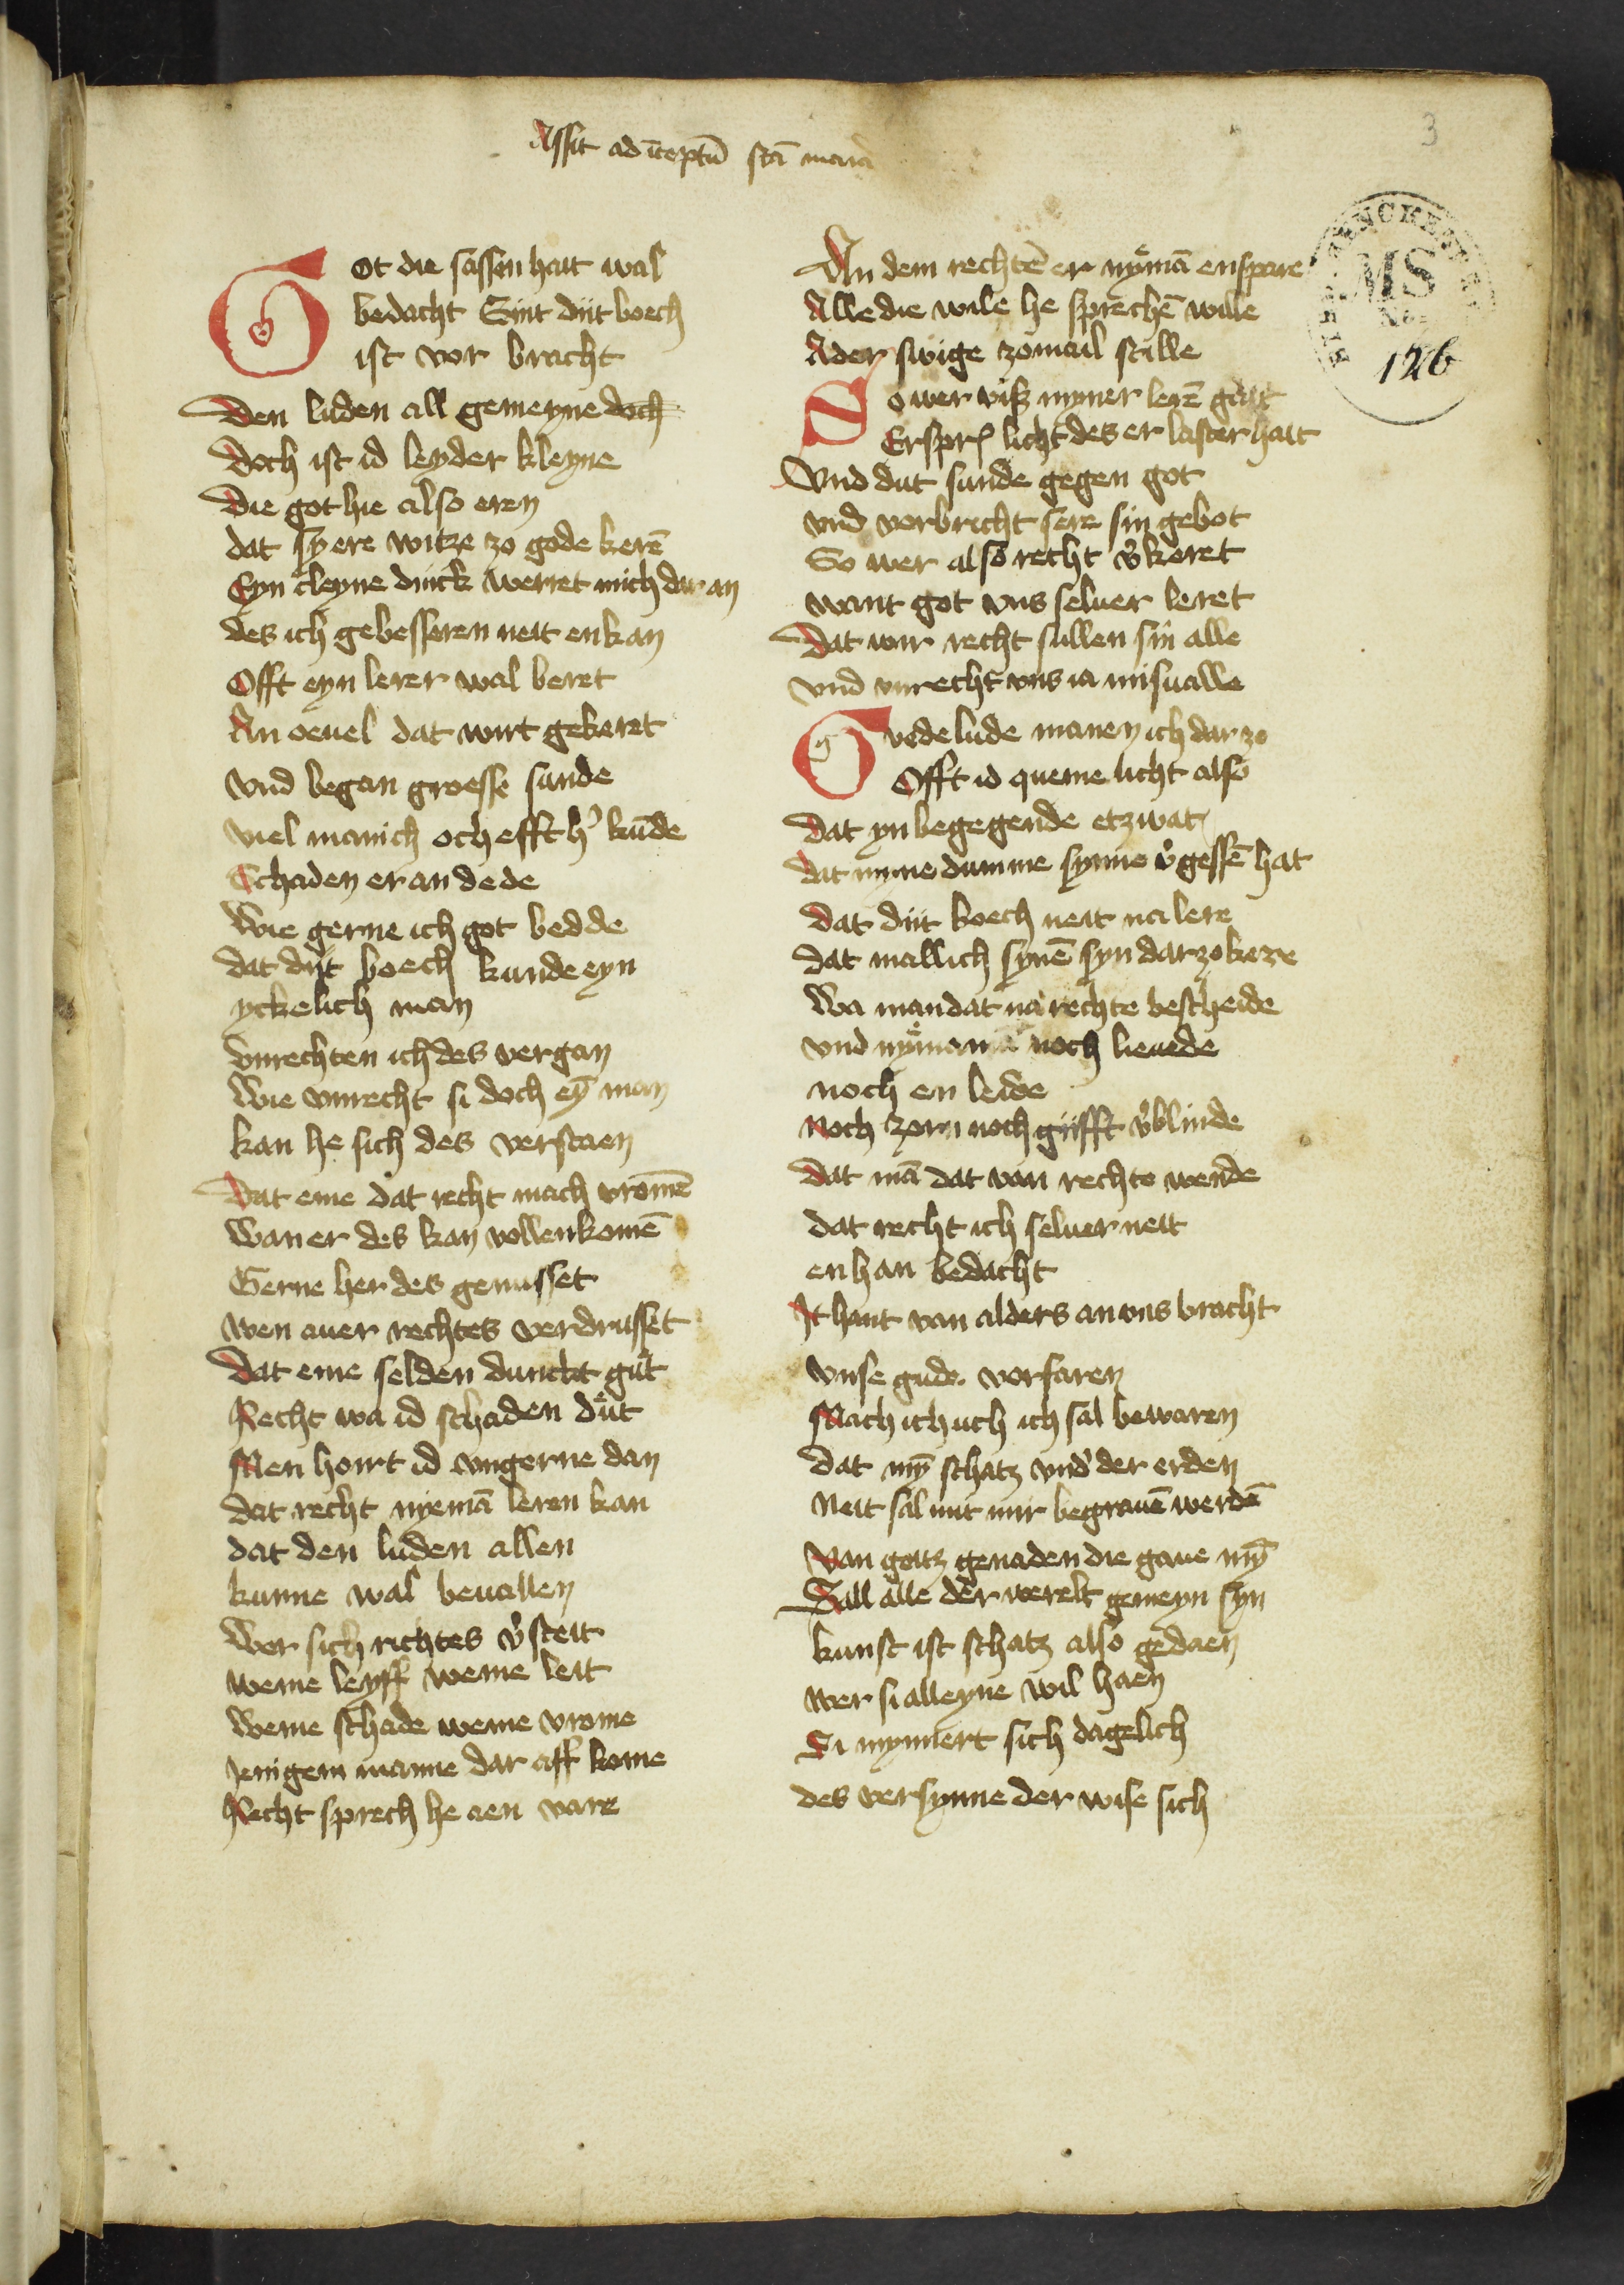 3
Assit ad īceptū scā maria
Got die sassen hait wal
bedacht Sint dijt boech
ist vor bracht
Den luden all gemeyne doch
Doch ist id leyder kleyne
Die got hie also eren
dat sy ere witze zo gode kerē
Eyn cleyne dinck werret mich dar an
des ich gebesseren neit enkan
Offt eyn lerer wal beret
An oeuel dat wirt gekeret
Vnd began groesse sunde
viel manich och efft h' kūde
Schaden er an dede
Wie gerne ich got bedde
dat dijt boech kunde eyn
yckelich man
vnrechten ich des vergan
Wie vnrecht si doch eȳ man
kan he sich des verstaen
Dat eme dat recht mach vromē
Wan er des kan vollenkomē
Gerne her des genusset
wen auer rechtes verdrusset
Dat eme selden dunckt gůt
Recht wa id schaden důt
Men hoirt id vngerne dan
dat recht nyemā leren kan
dat den luden allen
kunne wal beuallen
Wer sich richtes v'steit
weme leyff weme leit
Weme schade weme vrome
Jenigem manne dar aff kome
Recht sprech he aen vare
An dem rechtē er nÿmā enspare
Alle die wile he sprechē wille
Ader swige zomail stille
So wer viß myner lerē gait
Erspr licht des er laster hait
Vnd dut sunde gegen got
vnd vorbricht sere sin gebot
So wer also recht v'keret
want got vns seluer leret
Dat wir recht sullen sin alle
vnd vnrecht vns ia misualle
Gvde lude manen ich dar zo
Offt id queme licht also
dat yn begegende etzwat
dat myne dumme synne v'gessē hat
dat dijt boech neit na lere
dat mallich synē syn dar zo kere
Wa man dat na rechte bescheide
vnd nÿmanne noch lieuede
noch en leide
Noch zorn noch gifft v'blinde
dat mā dat van rechte wende
dat recht ich seluer neit
en han bedacht
It hant van alders an vns bracht
vnse gude vorfaren
Mach ich uch ich sal bewaren
dat mȳ schatz vnd' der erden
Neit sal mit mir begrauē werdē
Van gottz genaden die gaue mȳ
Sall alle der werelt gemeyn syn
kunst ist schatz also gedaen
wer si alleyne wil haen
Si mynnert sich dagelich
des versynne der wise sich
MS
No.
126